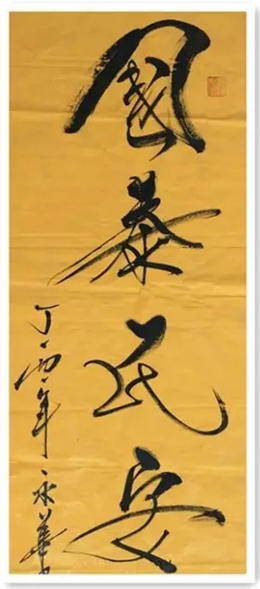 國泰民安
丁酉年永華